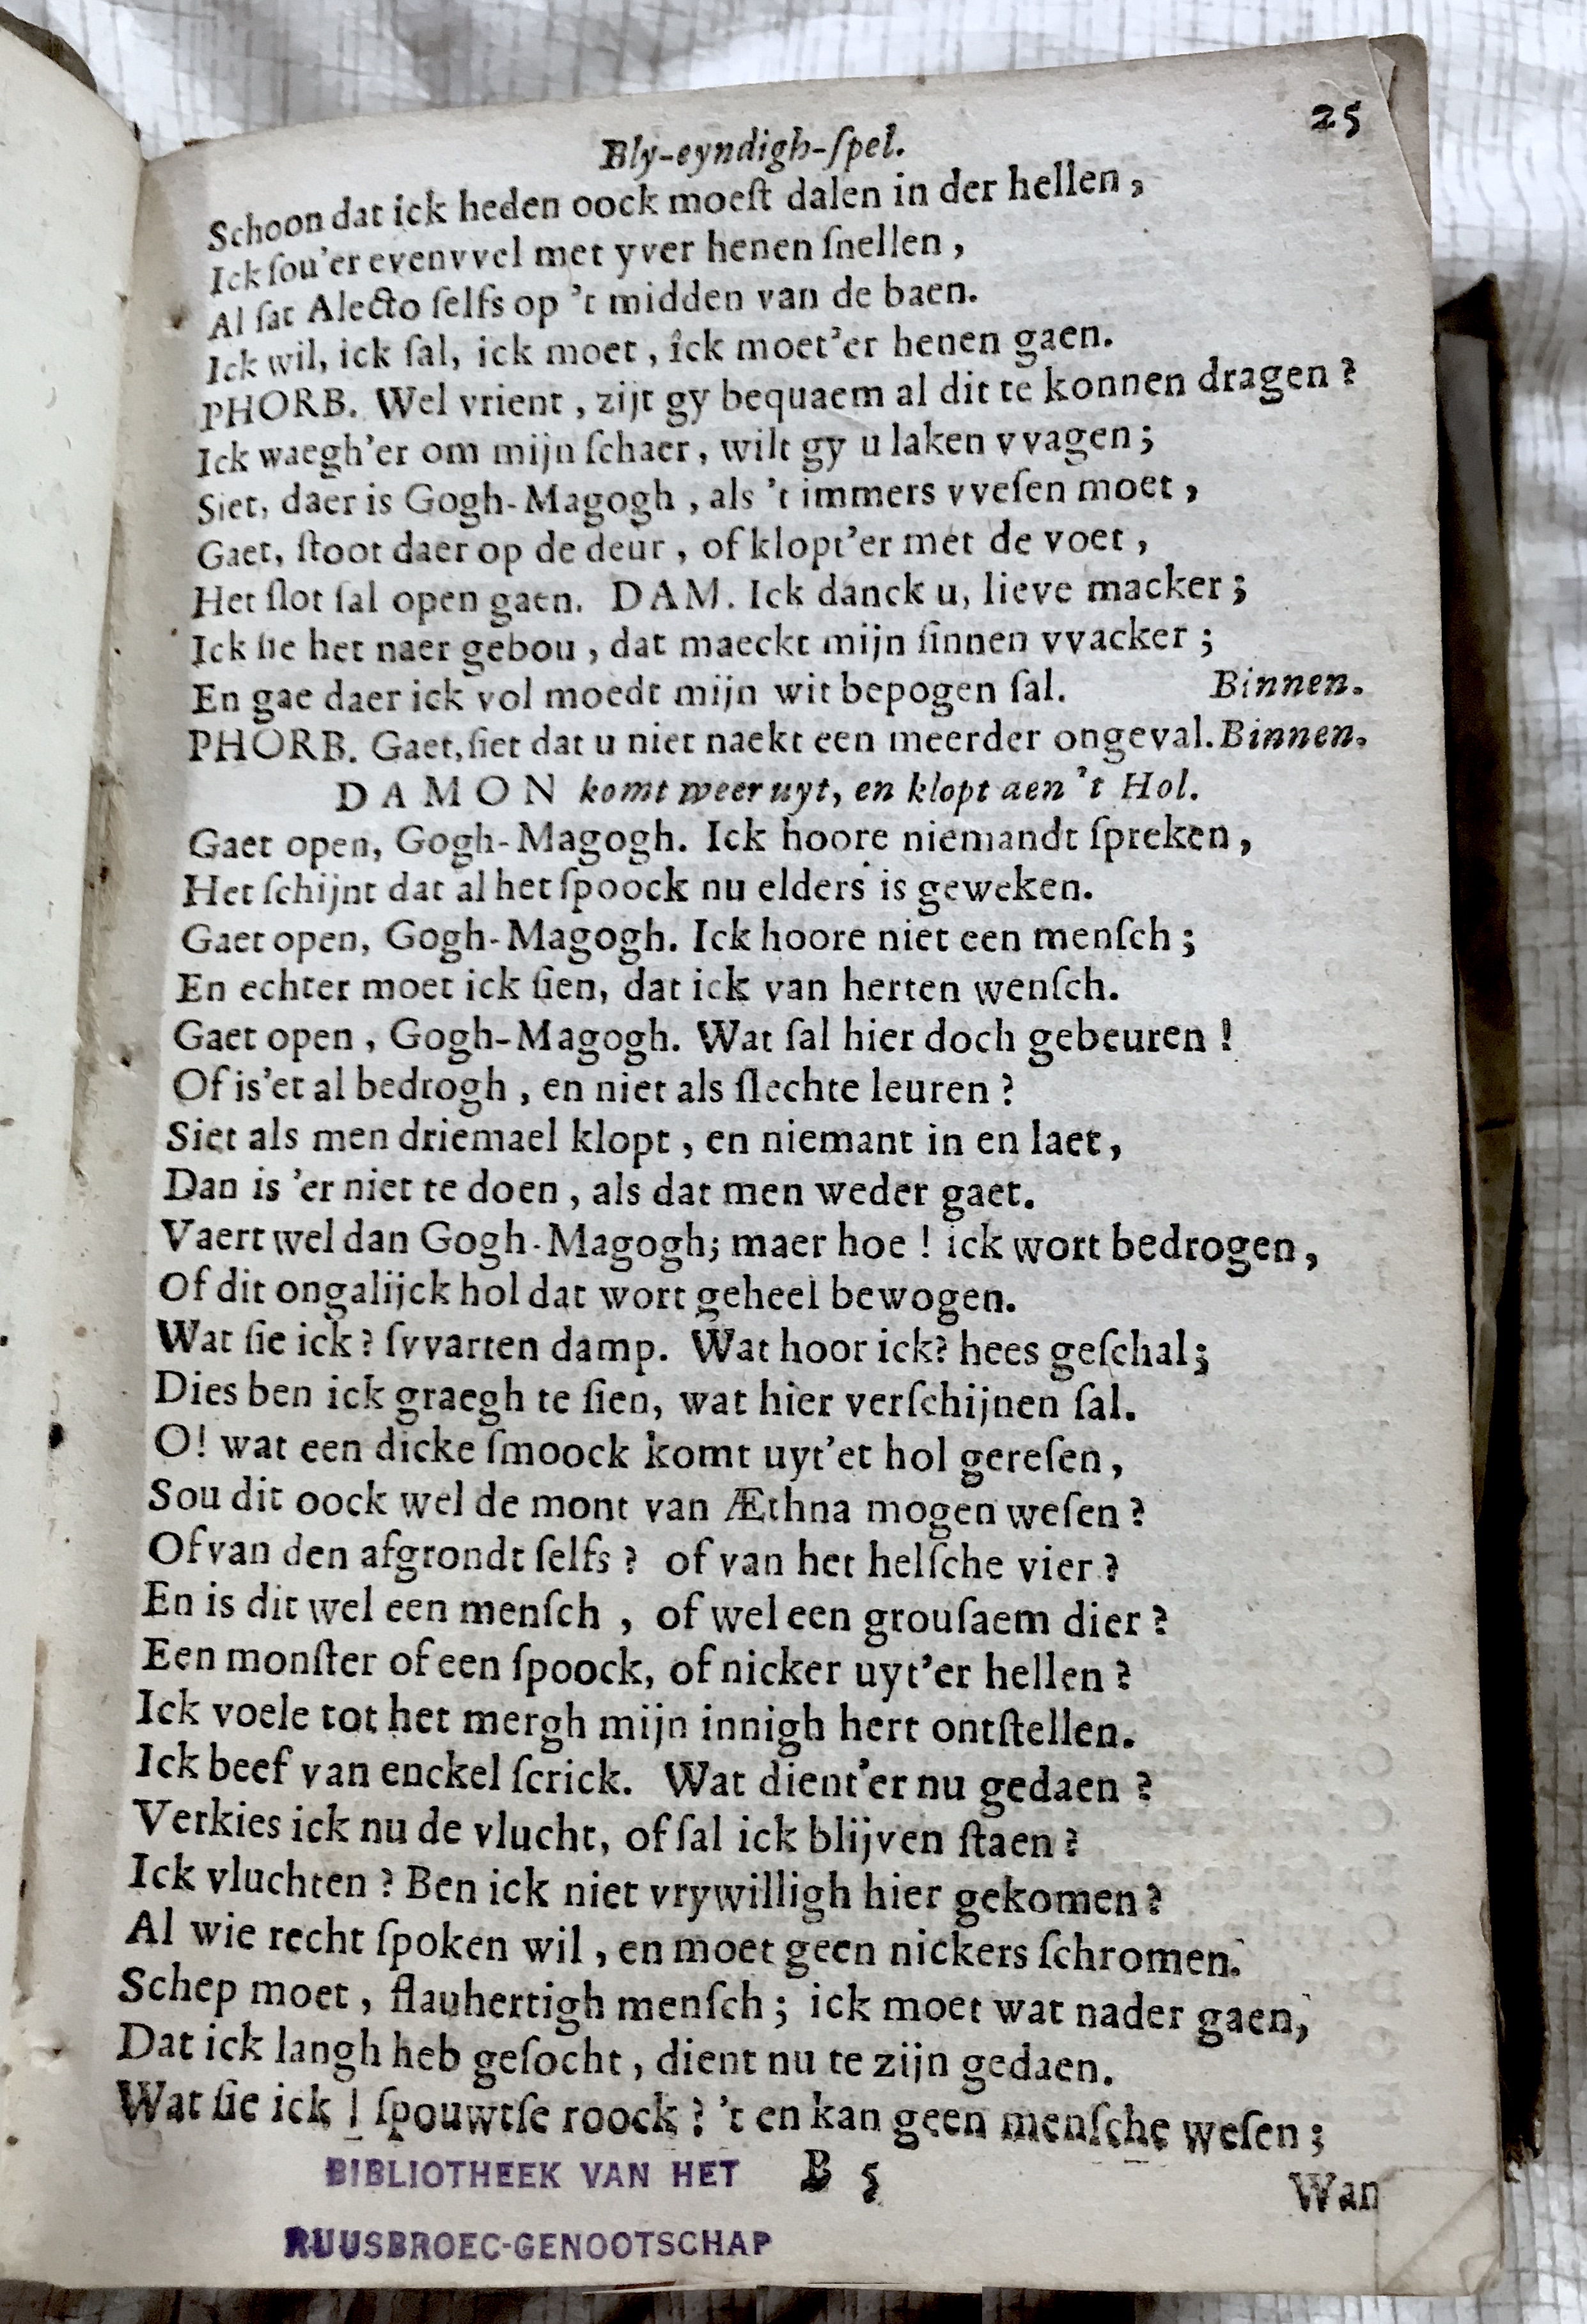 25
Bly-eyndigh-ſpel.
Schoon dat ick heden oock moeſt dalen in der hellen,
Ick ſou'er evenvvel met yver henen ſnellen,
Al ſat Alecto ſelfs op 't midden van de baen.
Ick wil, ick ſal, ick moet, ick moet'er henen gaen.
PHORB. Wel vrient, zijt gy bequaem al dit te konnen dragen?
Ick waegh'er om mijn ſchaer, wilt gy u laken vvagen;
Siet, daer is Gogh-Magogh, als 't immers vveſen moet,
Gaet, ſtoot daer op de deur, of klopt'er met de voet,
Het ſlot ſal open gaen. DAM. Ick danck u, lieve macker;
Ick ſie het naer gebou, dat maeckt mijn ſinnen vvacker;
En gae daer ick vol moedt mijn wit bepogen ſal. Binnen.
PHORB. Gaet, ſiet dat u niet naekt een meerder ongeval. Binnen.
DAMON komt weer uyt, en klopt aen 't Hol.
Gaet open, Gogh-Magogh. Ick hoore niemandt ſpreken,
Het ſchijnt dat al het ſpoock nu elders is geweken.
Gaet open, Gogh-Magogh. Ick hoore niet een menſch;
En echter moet ick ſien, dat ick van herten wenſch.
Gaet open, Gogh-Magogh. Wat ſal hier doch gebeuren!
Of is'et al bedrogh, en niet als ſlechte leuren?
Siet als men driemael klopt, en niemant in en laet,
Dan is 'er niet te doen, als dat men weder gaet.
Vaert wel dan Gogh-Magogh; maer hoe! ick wort bedrogen,
Of dit ongalijck hol dat wort geheel bewogen.
Wat ſie ick? ſvvarten damp. Wat hoor ick? hees geſchal;
Dies ben ick graegh te ſien, wat hier verſchijnen ſal.
O! wat een dicke ſmoock komt uyt'et hol gereſen,
Sou dit oock wel de mont van Æthna mogen weſen?
Of van den afgrondt ſelfs? of van het helſche vier?
En is dit wel een menſch, of wel een grouſaem dier?
Een monſter of een ſpoock, of nicker uyt'er hellen?
Ick voele tot het mergh mijn innigh hert ontſtellen.
Ick beef van enckel ſcrick. Wat dient'er nu gedaen?
Verkies ick nu de vlucht, of ſal ick blijven ſtaen?
Ick vluchten? Ben ick niet vrywilligh hier gekomen?
Al wie recht ſpoken wil, en moet geen nickers ſchromen.
Schep moet, flauhertigh menſch; ick moet wat nader gaen,
Dat ick langh heb geſocht, dient nu te zijn gedaen.
Wat ſie ick! ſpouwtſe roock? 't en kan geen menſche weſen;
B 5
Wan
BIBLIOTHEEK VAN HET
RUUSBROEC-GENOOTSCHAP